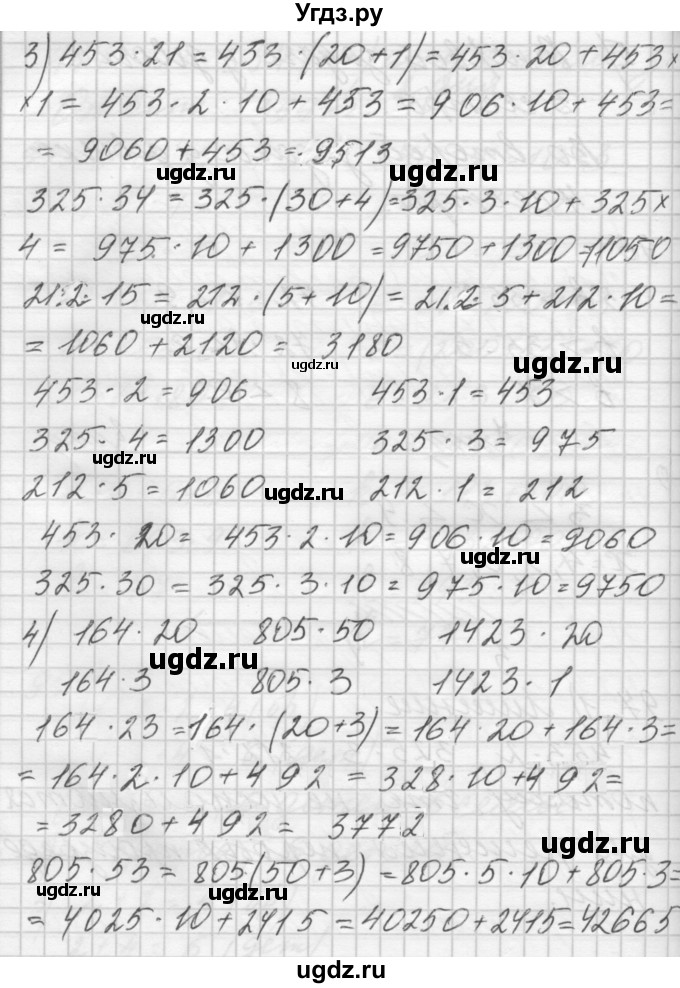 Угдз.ру
3) 453·21 = 453·(20+1) = 453·20 + 453×
×1 = 453·2·10 + 453 = 906·10 + 453 =
= 9060 + 453 = 9513
ugdz.ru ugdz.ru
325·34 = 325·(30+4) = 325·3·10 + 325×
4 = 975·10 + 1300 = 9750 + 1300 = 11050
212·15 = 212·(5+10) = 212·5 + 212·10 =
ugdz.ru ugdz.ru
= 1060 + 2120 = 3180
ugdz.ru ugdz.ru
453·2 = 906 453·1 = 453
325·4 = 1300 325·3 = 975
ugdz.ru
212·5 = 1060 ugdz.ru 212·1 = 212
453·20 = 453·2·10 = 906·10 = 9060
ugdz.ru
325·30 = 325·3·10 = 975·10 = 9750
4) 164·20 805·50 1423·20
ugdz.ru
164·3 805·3 1423·1
164·23 = 164·(20+3) = 164·20 + 164·3 =
= 164·2·10 + 492 = 328·10 + 492 =
= 3280 + 492 = 3772
ugdz.ru
805·53 = 805(50+3) = 805·5·10 + 805·3 =
ugdz.ru ugdz.ru
= 4025·10 + 2415 = 40250 + 2415 = 42665
ugdz.ru